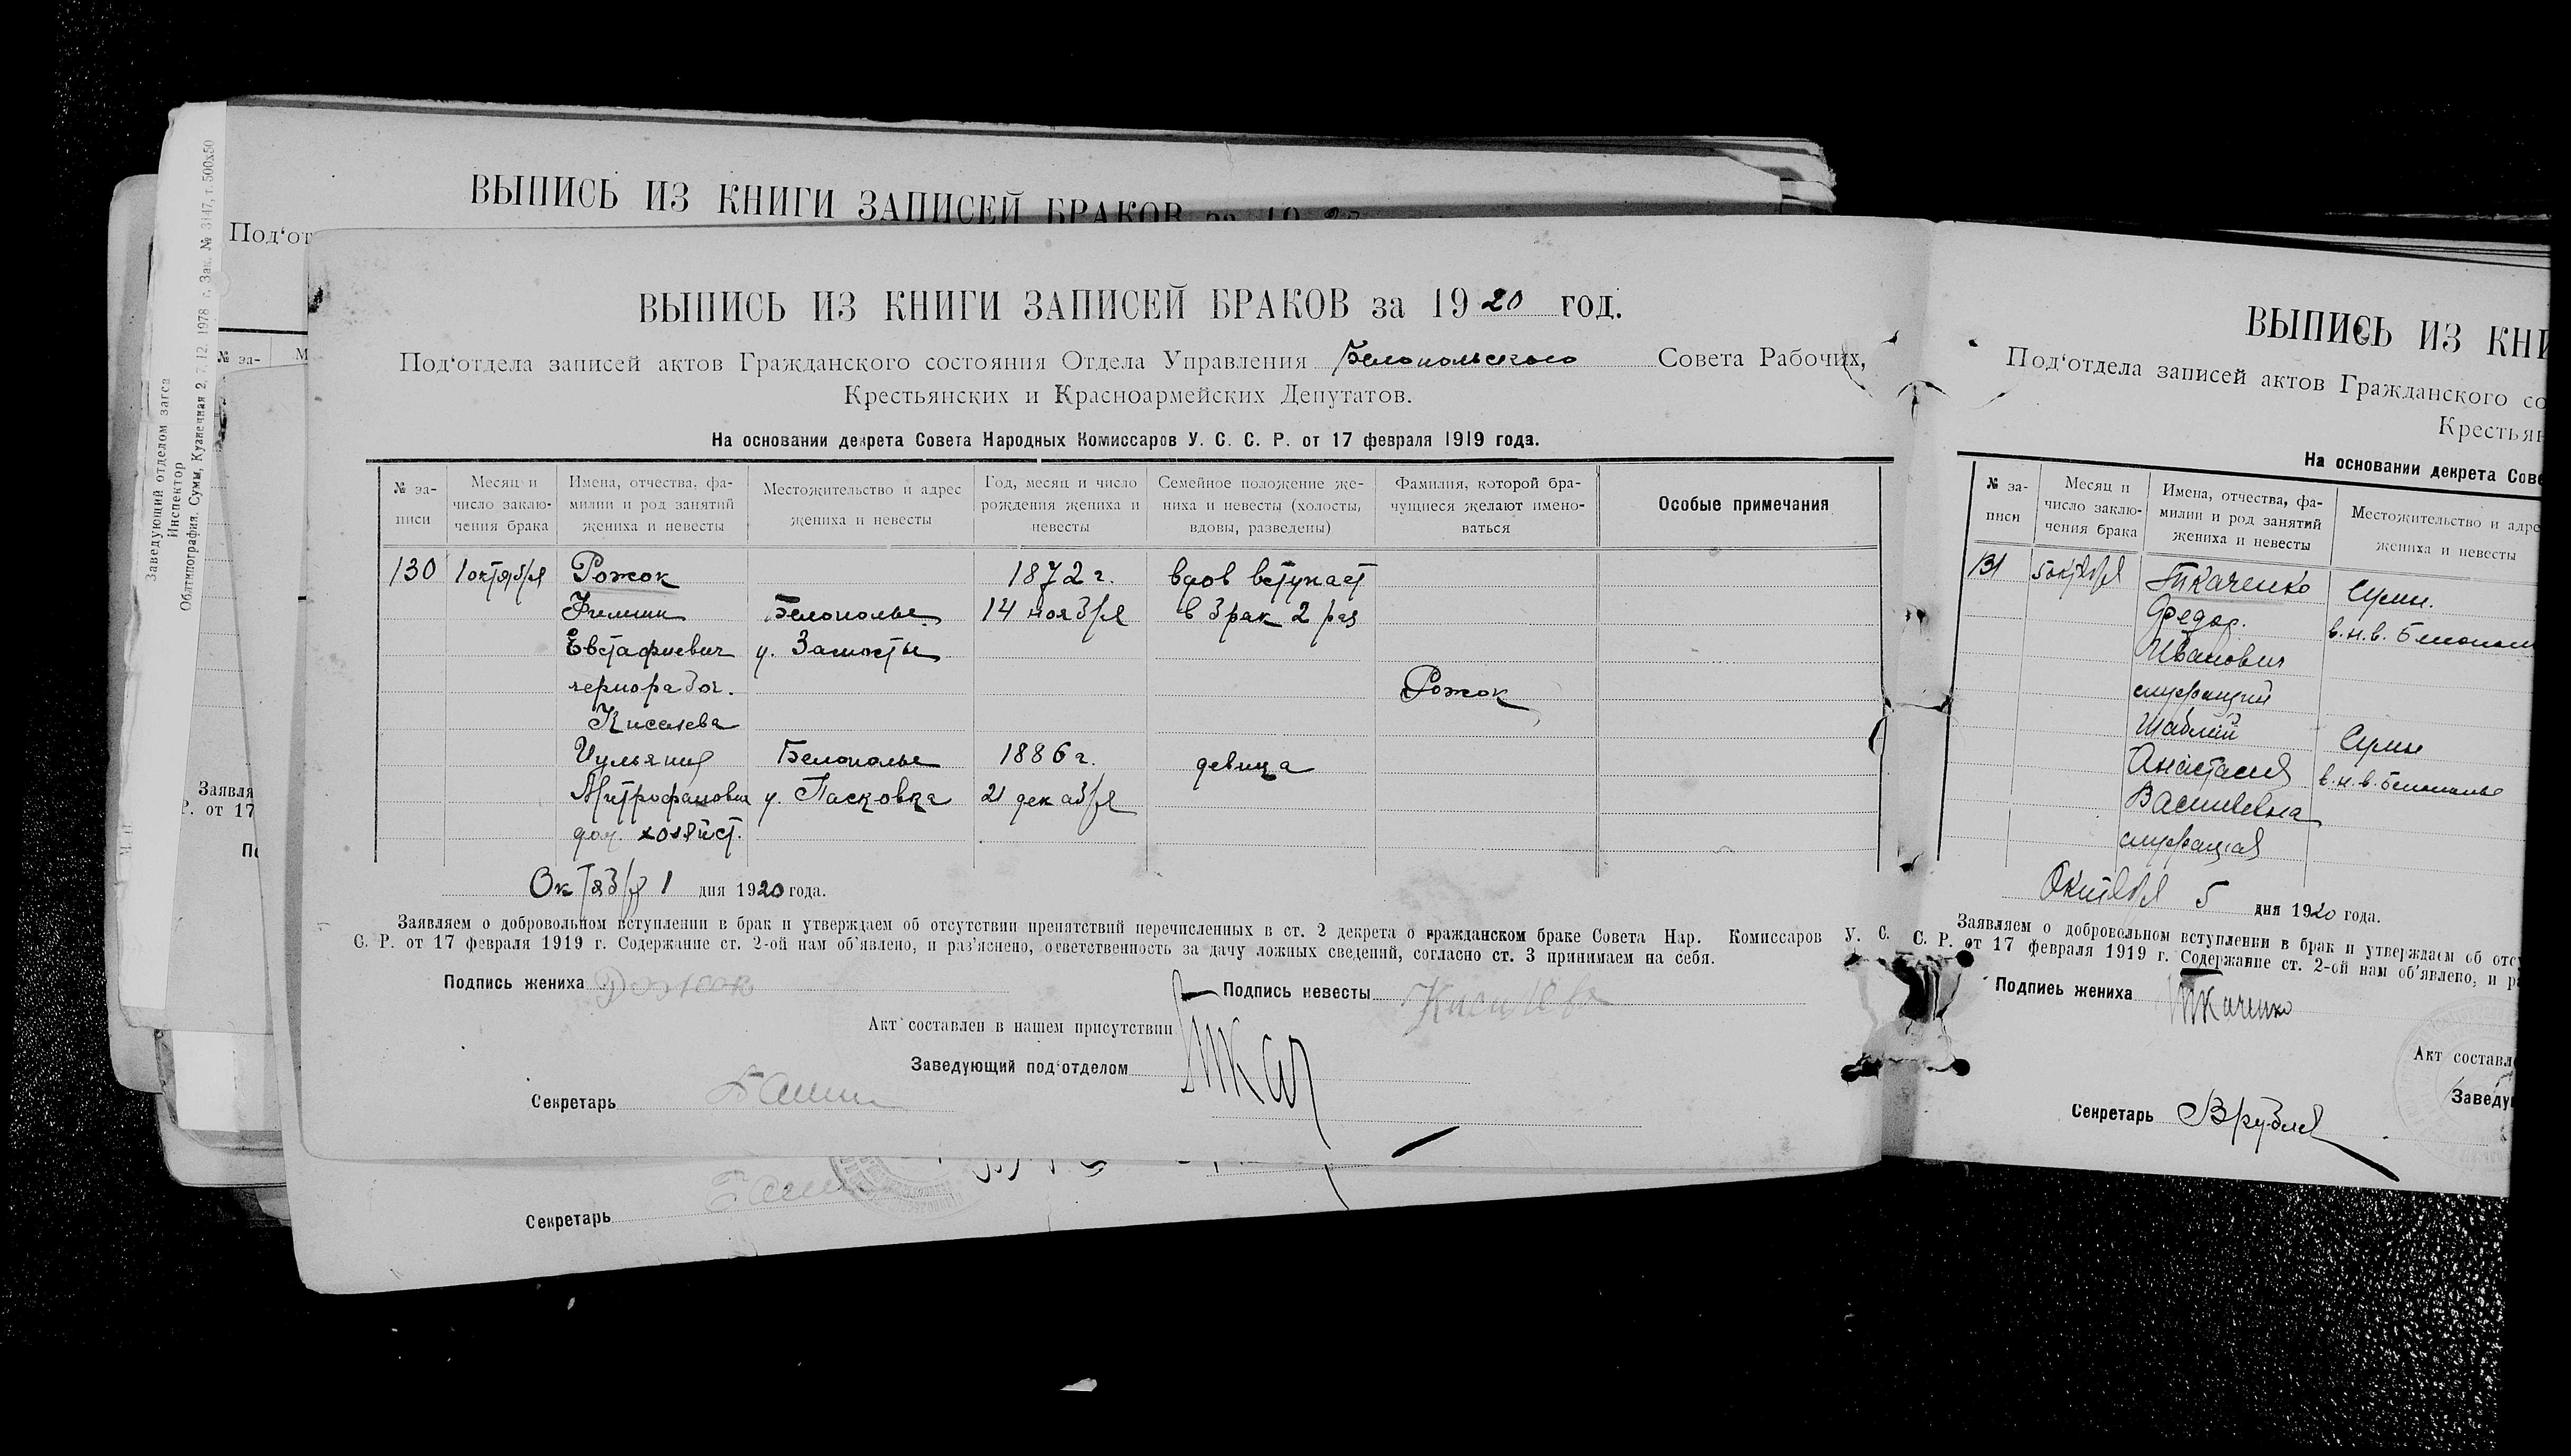 ВЫПИСЬ ИЗ КНИГИ ЗАПИСЕЙ БРАКОВ за 19
Под'от
№ за-
М
Заведующий отделом загса
Инспектор
Облтипография. Сумы, Кузнечная 2, 7. 12. 1978 г. Зак. № 3147, т. 500х50
Заявля
Р. от 17
ВЫПИСЬ ИЗ КНИГИ ЗАПИСЕЙ БРАКОВ за 1920 год.
Под'отдела записей актов Гражданского состояния Отдела Управления Белопольского Совета Рабочих,
Крестьянских и Красноармейских Депутатов.
На основании декрета Совета Народных Комиссаров У. С. С. Р. от 17 февраля 1919 года.
№ за-
писи
Месяц и
число заклю-
чения брака
Имена, отчества, фа-
милии и род занятий
жениха и невесты
Местожительство и адрес
жениха и невесты
Год, месяц и число
рождения жениха и
невесты
Семейное положение же-
ниха и невесты (холосты,
вдовы, разведены)
Фамилия, которой бра-
чущиеся желают имено-
ваться
Особые примечания
130 1 октября Рожок 1872 г. вдов вступает
Филипп Белополье 14 ноября в брак 2 раз
Евстафиевич у. Замостье
чернорабоч. Рожок
Киселева
Иульяния Белополье 1886 г. девица
Митрофановна у. Пасковка 21 декабря
дом. хозяйст.
Октября 1 дня 1920 года.
Заявляем о добровольном вступлении в брак и утверждаем об отсутствии препятствий перечисленных в ст. 2 декрета о гражданском браке Совета Нар. Комиссаров У. С.
С. Р. от 17 февраля 1919 г. Содержание ст. 2-ой нам об'явлено, и раз'яснено, ответственность за дачу ложных сведений, согласно ст. 3 принимаем на себя.
Подпись жениха Рожок Подпись невесты Киселева
Акт составлен в нашем присутствии
Заведующий под'отделом Ткач
Секретарь
Секретарь
ВЫПИСЬ ИЗ КНИ
Под'отдела записей актов Гражданского со
Крестьян
На основании декрета Сове
№ за-
писи
Месяц и
число заклю-
чения брака
Имена, отчества, фа-
милии и род занятий
жениха и невесты
Местожительство и адре
жениха и невесты
131 5 октября Ткаченко Сумы.
Федор. в.н.в. Белополь
Иванович
служащий
Шаблий Сумы
Анастасия в.н.в. Белополье
Васильевна
служащая
Октября 5 дня 1920 года.
Заявляем о добровольном вступлении в брак и утверждаем об отсу
С. Р. от 17 февраля 1919 г. Содержание ст. 2-ой нам об'явлено, и р
Подпись жениха Ткаченко
Акт составл
Заведу
Секретарь